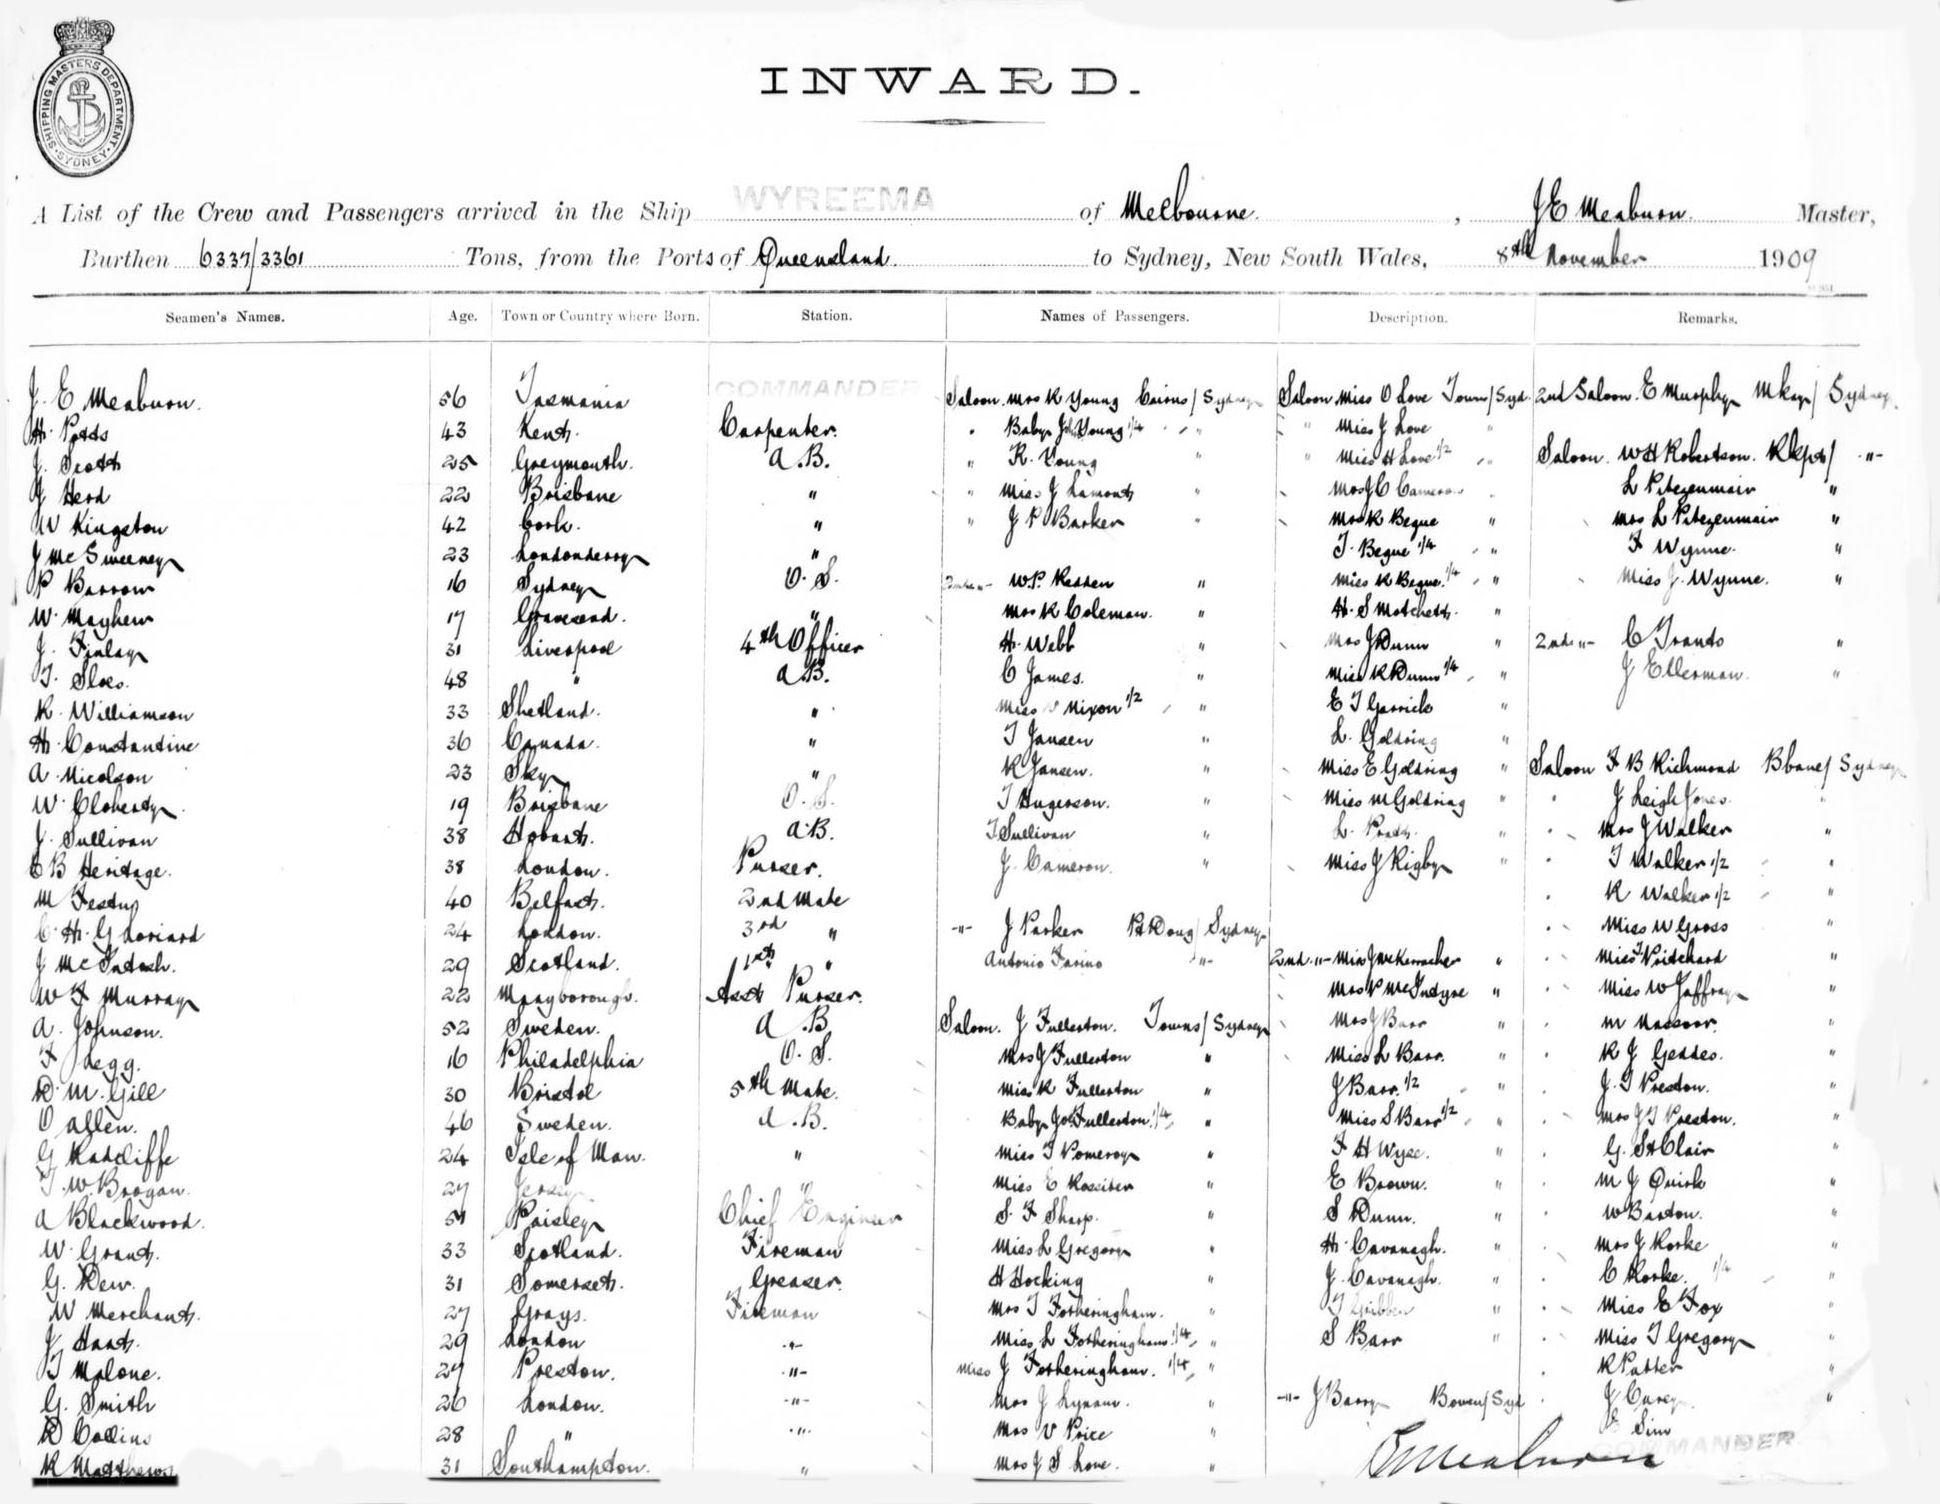 SHIPPING MASTERS DEPARTMENT · SYDNEY ·
INWARD.
A List of the Crew and Passengers arrived in the Ship WYREEMA of Melbourne, J E Meaburn Master,
Burthen 6337/3361 Tons, from the Ports of Queensland to Sydney, New South Wales, 8th November 1909
Seamen's Names. Age. Town or Country where Born. Station. Names of Passengers. Description. Remarks.
J. E Meaburn. 56 Tasmania COMMANDER Saloon. Mrs K Young Cairns/Sydney Saloon Miss O Love Towns/Syd. 2nd Saloon. E Murphy Mkay/Sydney
H. Potts 43 Kent. Carpenter. " Baby Young 1/4 " " Miss J Love "
J. Scott 25 Greymouth. A.B. " K. Young " " Miss H Love 1/2 " Saloon. W H Robertson. Rkpt/ -"-
J Herd 22 Brisbane " " Miss J Lamont " Mrs J C Cameron " L Pitezenmair "
W Kingston 42 Cork. " " J P Barker " Mrs K Begue " Mrs L Pitezenmair "
J McSweeney 23 Londonderry " T. Begue 1/4 " F Wynne. "
P Barrow 16 Sydney O.S. 2nd -"- W.P. Redden " Miss K Begue. 1/4 " Miss J. Wynne. "
W. Mayhew 17 Gravesend. " Mrs K Coleman. " H. S Matchett. "
J. Finlay 31 Liverpool 4th Officer H. Webb " Mrs J Dunn " 2nd -"- C Trants "
T. Sloes. 48 " A.B. C James. " Miss K Dunn 1/4 " J Ellerman. "
K. Williamson 33 Shetland. " Miss Nixon 1/2 " E T Garrick "
H. Constantine 36 Canada. " T Jansen " L. Goldring "
A. Nicolson 23 Sky " K Jansen. " Miss E Goldring " Saloon F B Richmond Bbane/Sydney
W. Cloherty. 19 Brisbane O.S. T Hugerson. " Miss M Goldring " " J Leigh Jones. "
J. Sullivan 38 Hobart. A.B. T Sullivan " L. Pratt. " " Mrs J Walker "
E B Heritage. 38 London. Purser. J. Cameron. " Miss J Rigby " " T Walker 1/2 "
M Festus 40 Belfast. 2nd Mate " K Walker 1/2 "
C. H. G Loriard 24 London. 3rd " -"- J Parker Pt Doug/Sydney " Miss W Gross "
J McIntosh. 29 Scotland. 1st " Antonio Farino -"- 2nd -"- Miss J McKerracher " " Miss T Pritchard "
W F Murray 22 Maryborough. Asst Purser. Mrs P McIndyre " " Miss W Jaffray "
A. Johnson. 52 Sweden. A.B Saloon. J Fullerton. Towns/Sydney Mrs J Barr " " M Nassoor. "
F Legg. 16 Philadelphia O.S. Mrs J Fullerton " Miss L Barr. " " K J Geddes. "
D. M. Gill 30 Bristol 5th Mate. Miss K Fullerton " J Barr. 1/2 " " J. T Preston. "
O Allen. 46 Sweden. A.B. Baby Jo Fullerton 1/4 " Miss S Barr 1/2 " " Mrs J T Preston. "
G Radcliffe 24 Isle of Man. " Miss T Pomeroy " F H Wyse. " " G. St Clair "
T. W. Brogan. 27 Jersey " Miss E Rossiter " E Brown. " " M J Quirk "
A Blackwood. 51 Paisley Chief Engineer S. F Sharp. " S Dunn. " " W Barton. "
W. Grant. 33 Scotland. Fireman Miss L Gregory " H. Cavanagh. " " Mrs J Korke "
G. Dew. 31 Somerset. Greaser. H Hocking " J. Cavanagh. " " C Korke. 1/4 "
W Merchant. 27 Grays. Fireman Mrs T Fotheringham. " T Gribben " " Miss E Fox "
J Hart. 29 London -"- Miss L Fotheringham. 1/4 " S Barr " " Miss T Gregory "
T Malone. 27 Preston. -"- Miss J Fotheringham. 1/4 " " K Patter "
G. Smith 26 London. -"- Mrs J Lynam. " -"- J Barry Bowen/Syd " J Carey. "
D Collins 28 " -"- Mrs V Price " E Sim
K Matthews 31 Southampton. " Mrs J S Love. " J E Meaburn COMMANDER